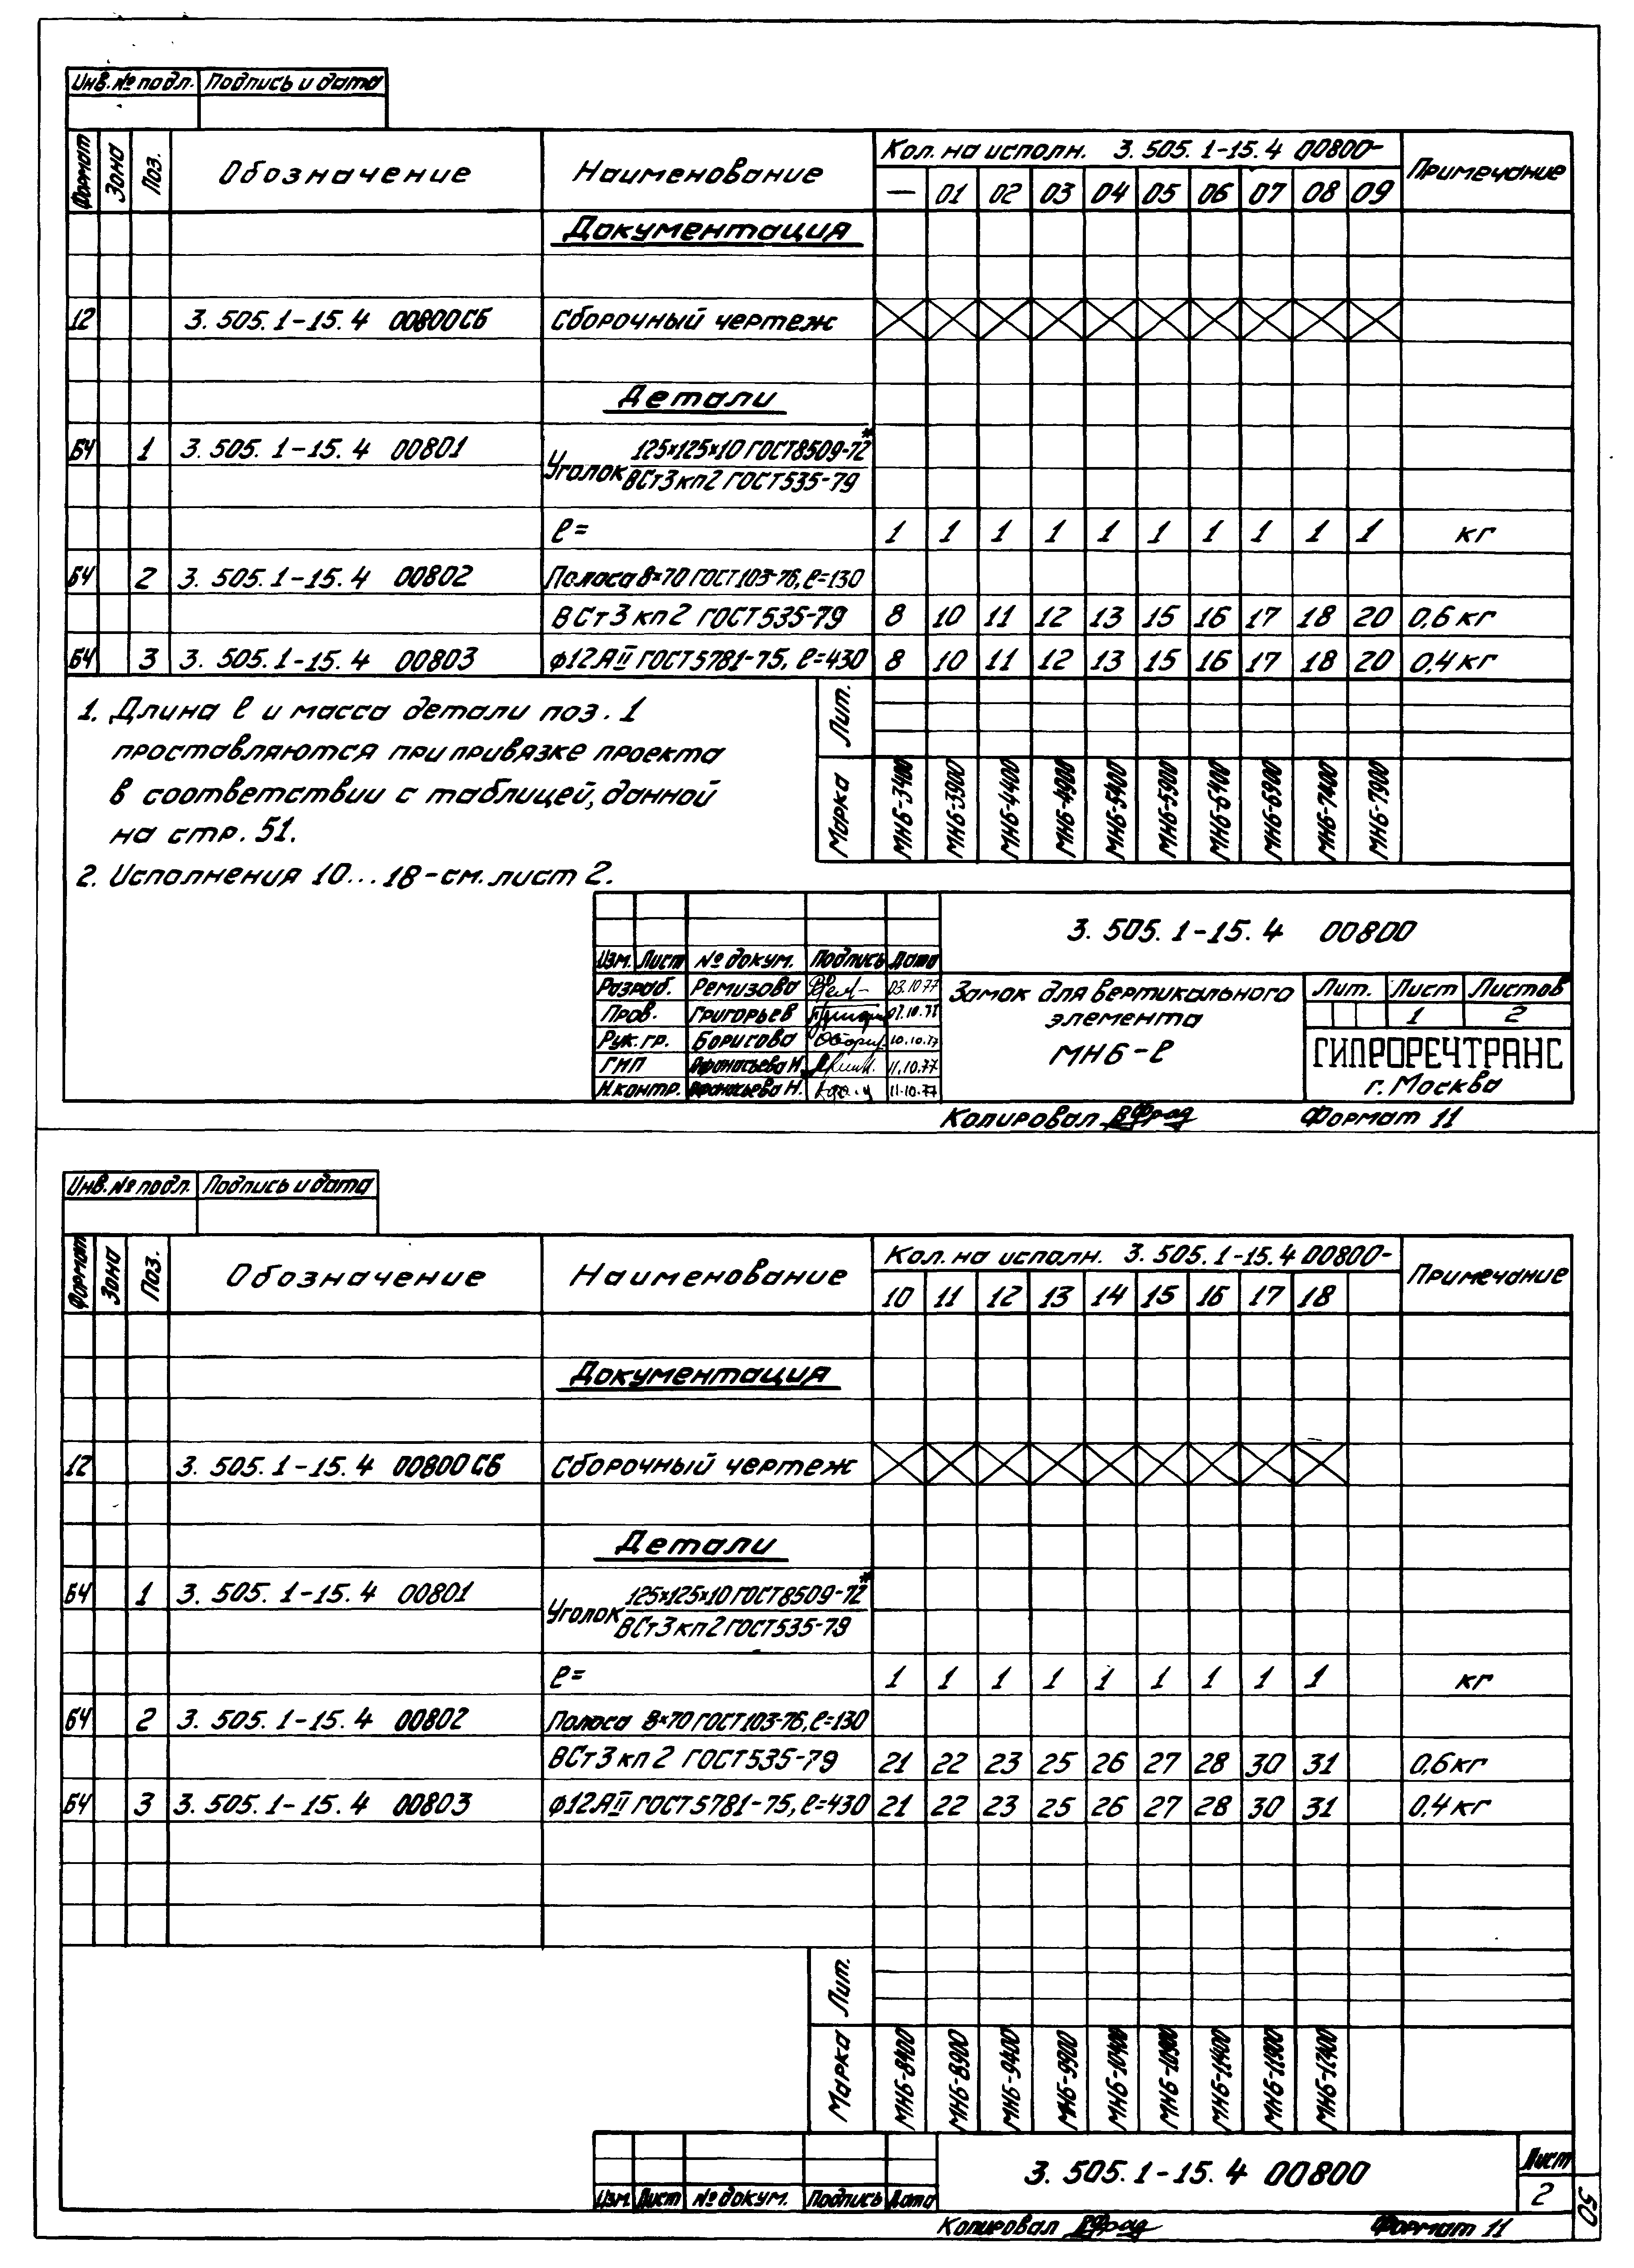 Инв. № подл. Подпись и дата
Формат Зона Поз. Обозначение Наименование Кол. на исполн. 3.505.1-15.4 00800- Примечание
— 01 02 03 04 05 06 07 08 09
Документация
12 3.505.1-15.4 00800СБ Сборочный чертеж
Детали
БЧ 1 3.505.1-15.4 00801 Уголок 125×125×10 ГОСТ 8509-72*
ВСт3кп2 ГОСТ 535-79
ℓ= 1 1 1 1 1 1 1 1 1 1 кг
БЧ 2 3.505.1-15.4 00802 Полоса 8×70 ГОСТ 103-76, ℓ=130
ВСт3кп2 ГОСТ 535-79 8 10 11 12 13 15 16 17 18 20 0,6 кг
БЧ 3 3.505.1-15.4 00803 φ12АII ГОСТ 5781-75, ℓ=430 8 10 11 12 13 15 16 17 18 20 0,4 кг
1. Длина ℓ и масса детали поз. 1
проставляются при привязке проекта
в соответствии с таблицей, данной
на стр. 51.
2. Исполнения 10...18 - см. лист 2.
Лит.
Марка МН6-3400 МН6-3900 МН6-4400 МН6-4900 МН6-5400 МН6-5900 МН6-6400 МН6-6900 МН6-7400 МН6-7900
3.505.1-15.4 00800
Изм. Лист № докум. Подпись Дата
Разраб. Ремизова 03.10.77
Пров. Григорьев 07.10.77
Рук. гр. Борисова 10.10.77
ГИП Афанасьева Н. 11.10.77
Н.контр. Афанасьева Н. 11.10.77
Замок для вертикального
элемента
МН6-ℓ
Лит. Лист Листов
1 2
ГИПРОРЕЧТРАНС
г. Москва
Копировал Формат 11
Инв. № подл. Подпись и дата
Формат Зона Поз. Обозначение Наименование Кол. на исполн. 3.505.1-15.4 00800- Примечание
10 11 12 13 14 15 16 17 18
Документация
12 3.505.1-15.4 00800СБ Сборочный чертеж
Детали
БЧ 1 3.505.1-15.4 00801 Уголок 125×125×10 ГОСТ 8509-72*
ВСт3кп2 ГОСТ 535-79
ℓ= 1 1 1 1 1 1 1 1 1 кг
БЧ 2 3.505.1-15.4 00802 Полоса 8×70 ГОСТ 103-76, ℓ=130
ВСт3кп2 ГОСТ 535-79 21 22 23 25 26 27 28 30 31 0,6 кг
БЧ 3 3.505.1-15.4 00803 φ12АII ГОСТ 5781-75, ℓ=430 21 22 23 25 26 27 28 30 31 0,4 кг
Лит.
Марка МН6-8400 МН6-8900 МН6-9400 МН6-9900 МН6-10400 МН6-10900 МН6-11400 МН6-11900 МН6-12400
3.505.1-15.4 00800
Лист
2
Изм. Лист № докум. Подпись Дата
50
Копировал Формат 11